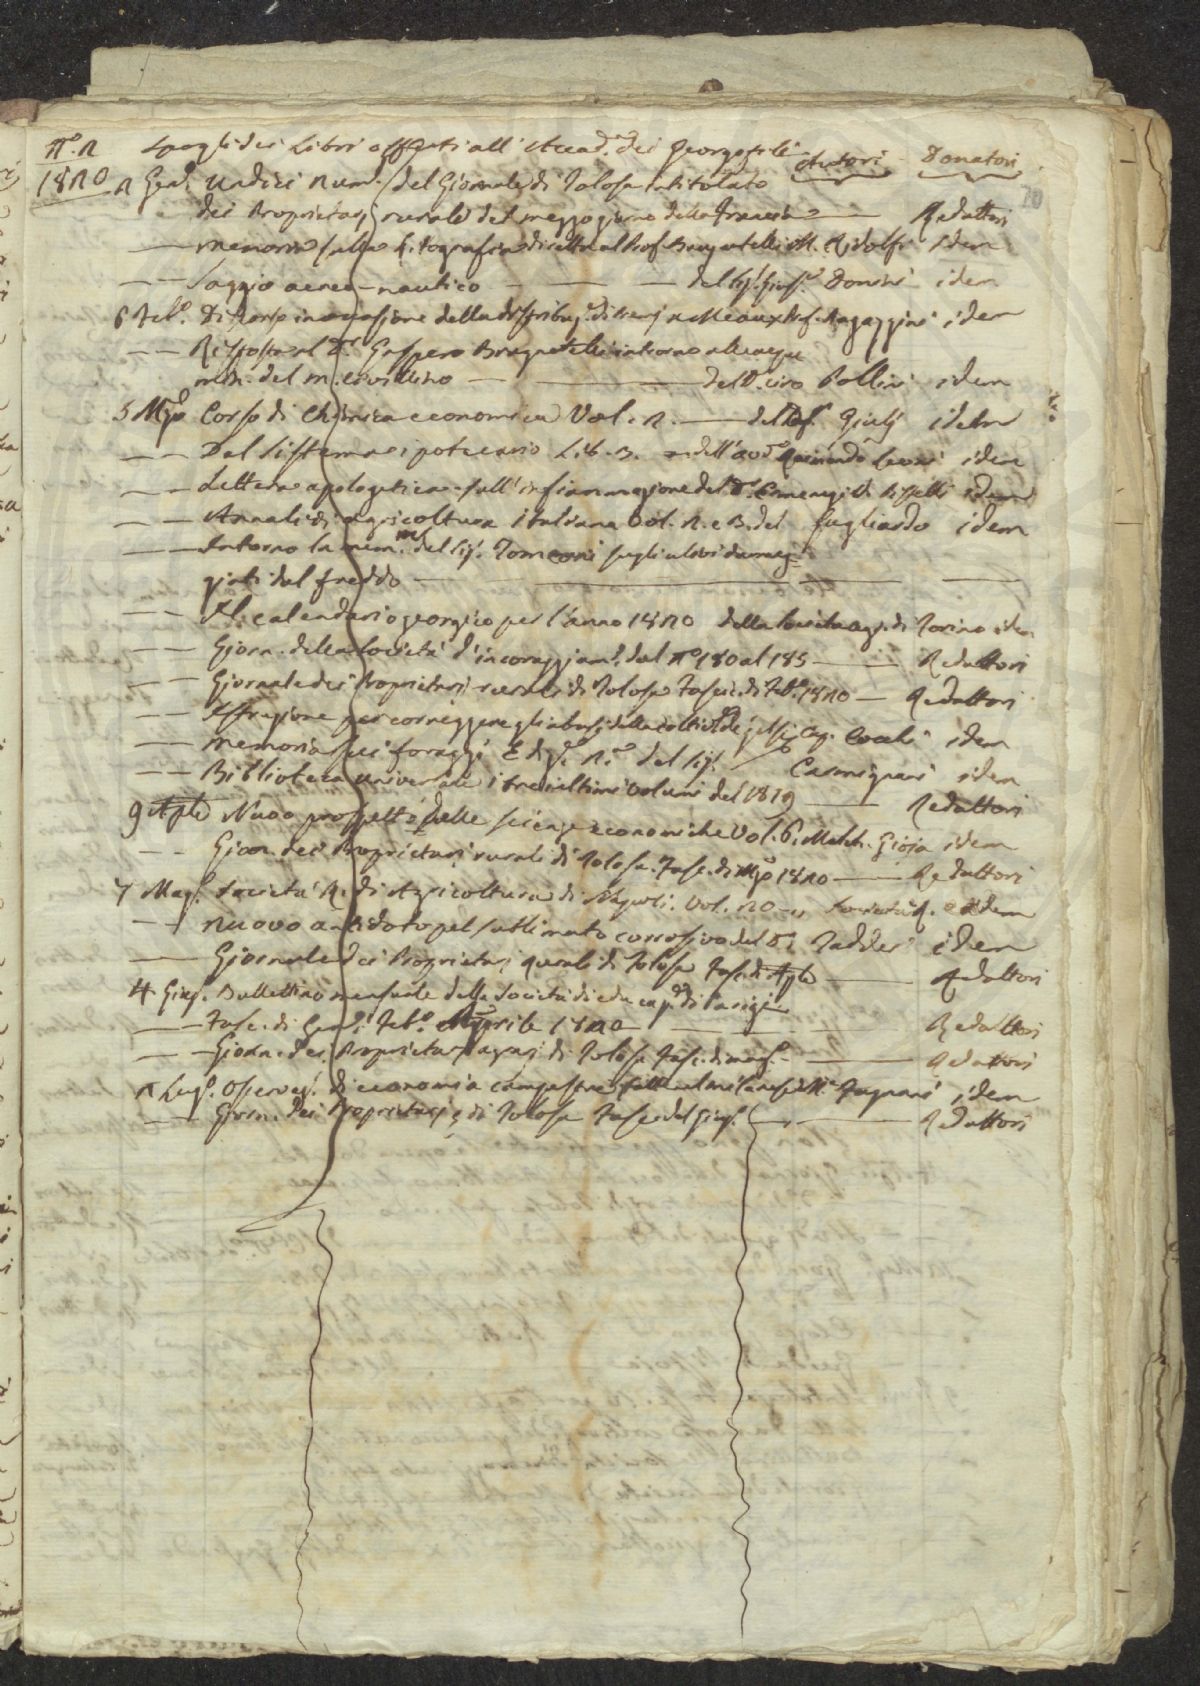 N.° 2 Spoglj dei Libri offerti all' Accad.ª dei Georgofili Autori Donatori
1820 2 Gen.° Undici Num.i del Giornale di Tolosa intitolato
dei Proprietarj rurali del mezzogiorno della Francia — Redattori
— Memoria sulla Litografia diretta al Prof. Brugnatelli M. Ridolfi idem
— Saggio aereo-nautico — del Sig. Gius.e Donini idem
6 Feb.° Discorso in occasione della distribuz.e di Prof. Ragazzini idem
— Risposta al D.r Gaspero Brugnatelli intorno alle acque
min. del m. Civillino — del D. Ciro Pollini idem
5 Mzo Corso di Chimica economica Vol. 2. — del Prof. Giulj idem
— Del Sistema ipotecario Lib. 3. dell' avv.° idem
— Lettera apologetica sull' infiammazione del D. idem
— Annali di agricoltura italiana Vol. 2. e 3. del fugliardo idem
— Intorno la mem. del Sig. Tomeoni sugli ulivi danneg=
giati dal freddo —
— Il calendario georgico per l' anno 1820 della Società ag. di Torino idem
— Giorn. della Società d' incoraggiam.° dal N.° 180 al 185 — Redattori
— Giornale dei Proprietarj rurali di Tolosa Fasc. di Feb.° 1820 — Redattori
— Istruzione per correggere gli abusi della coltiv.e dei gelsi Cap. idem
— Memoria sui foraggi Ediz.e 2.ª del Sig. Carmignani idem
— Biblioteca universale i tre ultimi volumi del 1819 — Redattori
9 Aple Nuovo prospetto delle scienze economiche Vol. 6. Melch. Gioja idem
— Gior. dei Proprietarj rurali di Tolosa. Fasc. di Mzo 1820 — Redattori
7 Mag.° Società R. di Agricoltura di Vol. 20 — Società R. idem
— Nuovo antidoto pel sullimato corrosivo del D. Taddei idem
— Giornale dei Proprietarj rurali di Tolosa Fasc. di Aple — Redattori
4. Giug.° Bullettino mensuale della Società di educaz.e di Parigi
— Fasc. di Gen.° Feb.° Aprile 1820 — Redattori
— Giorn. dei Proprietarj di Tolosa Fasc. di mag.° — Redattori
2 Lug.° Osservaz. di economia campestre fatte nel milanese di M. Fagnani idem
— Giorn. dei Proprietarj di Tolosa Fasc. del Giug.° — Redattori